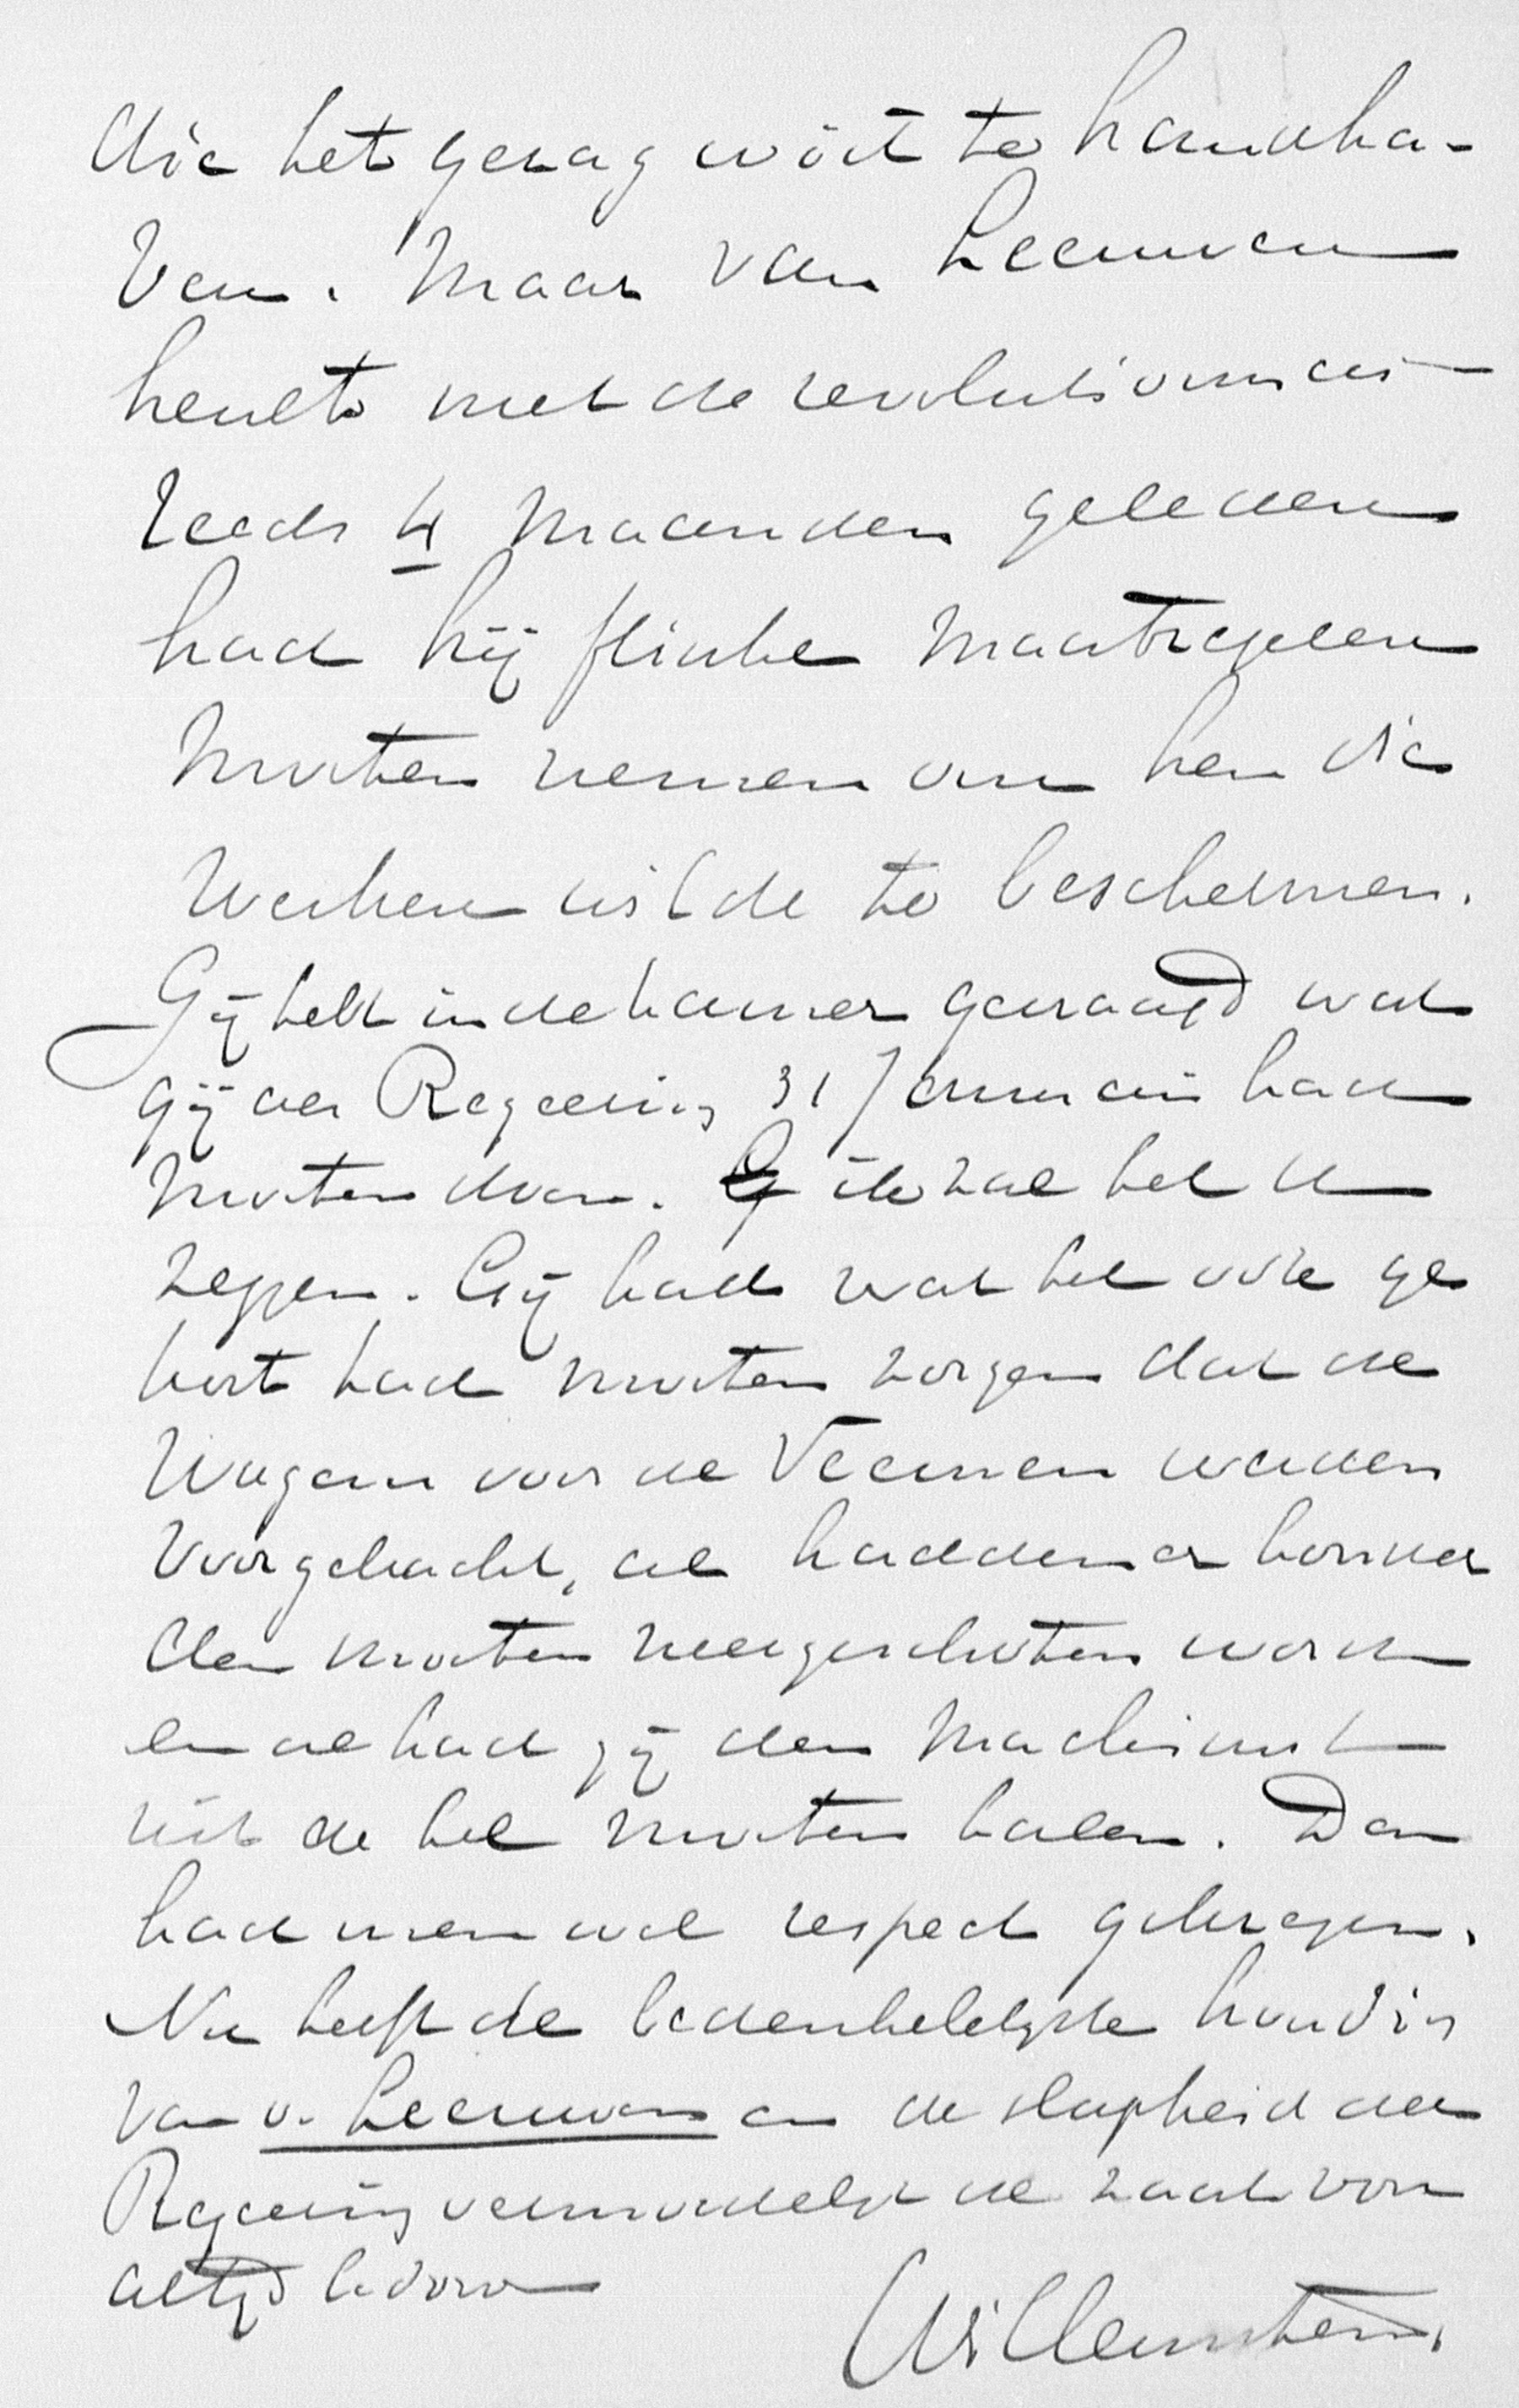 die het gezag wist te handha-
ven. Maar van Leeuwen
heult met de revolutionnair
reeds 4 maanden geleden
had hij flinke maatregelen
moeten nemen om hen die
werken wilde te beschermen.
Gij hebt in de kamer gevraagd wat
gij der Regeering 31 Januari had
moeten doen. ik zal het u
zeggen. Gij had wat het ook ge
kost had moeten zorgen dat de
wagens voor de Veemen werden
voorgebracht, al hadden er honder
den moeten neergeschoten worden
en al had gij den machinist
uit de hel moeten halen. Dan
had men wel respect gekregen.
Nu heeft de bedenkelijke houding
van v. Leeuwen en de slapheid der
Regeering vermoedelijk de zaak voor
altijd bedorven